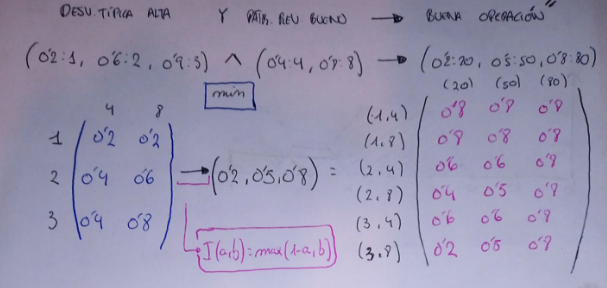 DESV. TÍPICA ALTA Y PATR. REV BUENO → BUENA OPERACIÓN"
(0'2:1, 0'6:2, 0'9:3) ∧ (0'4:4, 0'8:8) → (0'2:20, 0'5:50, 0'8:80)
min
(20) (50) (80)
4 8
1 0'2 0'2
2 0'4 0'6
3 0'4 0'8
→ (0'2, 0'5, 0'8) =
I(a,b)=max(1-a,b)
(1,4) 0'8 0'8 0'8
(1,8) 0'8 0'8 0'8
(2,4) 0'6 0'6 0'8
(2,8) 0'4 0'5 0'8
(3,4) 0'6 0'6 0'8
(3,8) 0'2 0'5 0'8